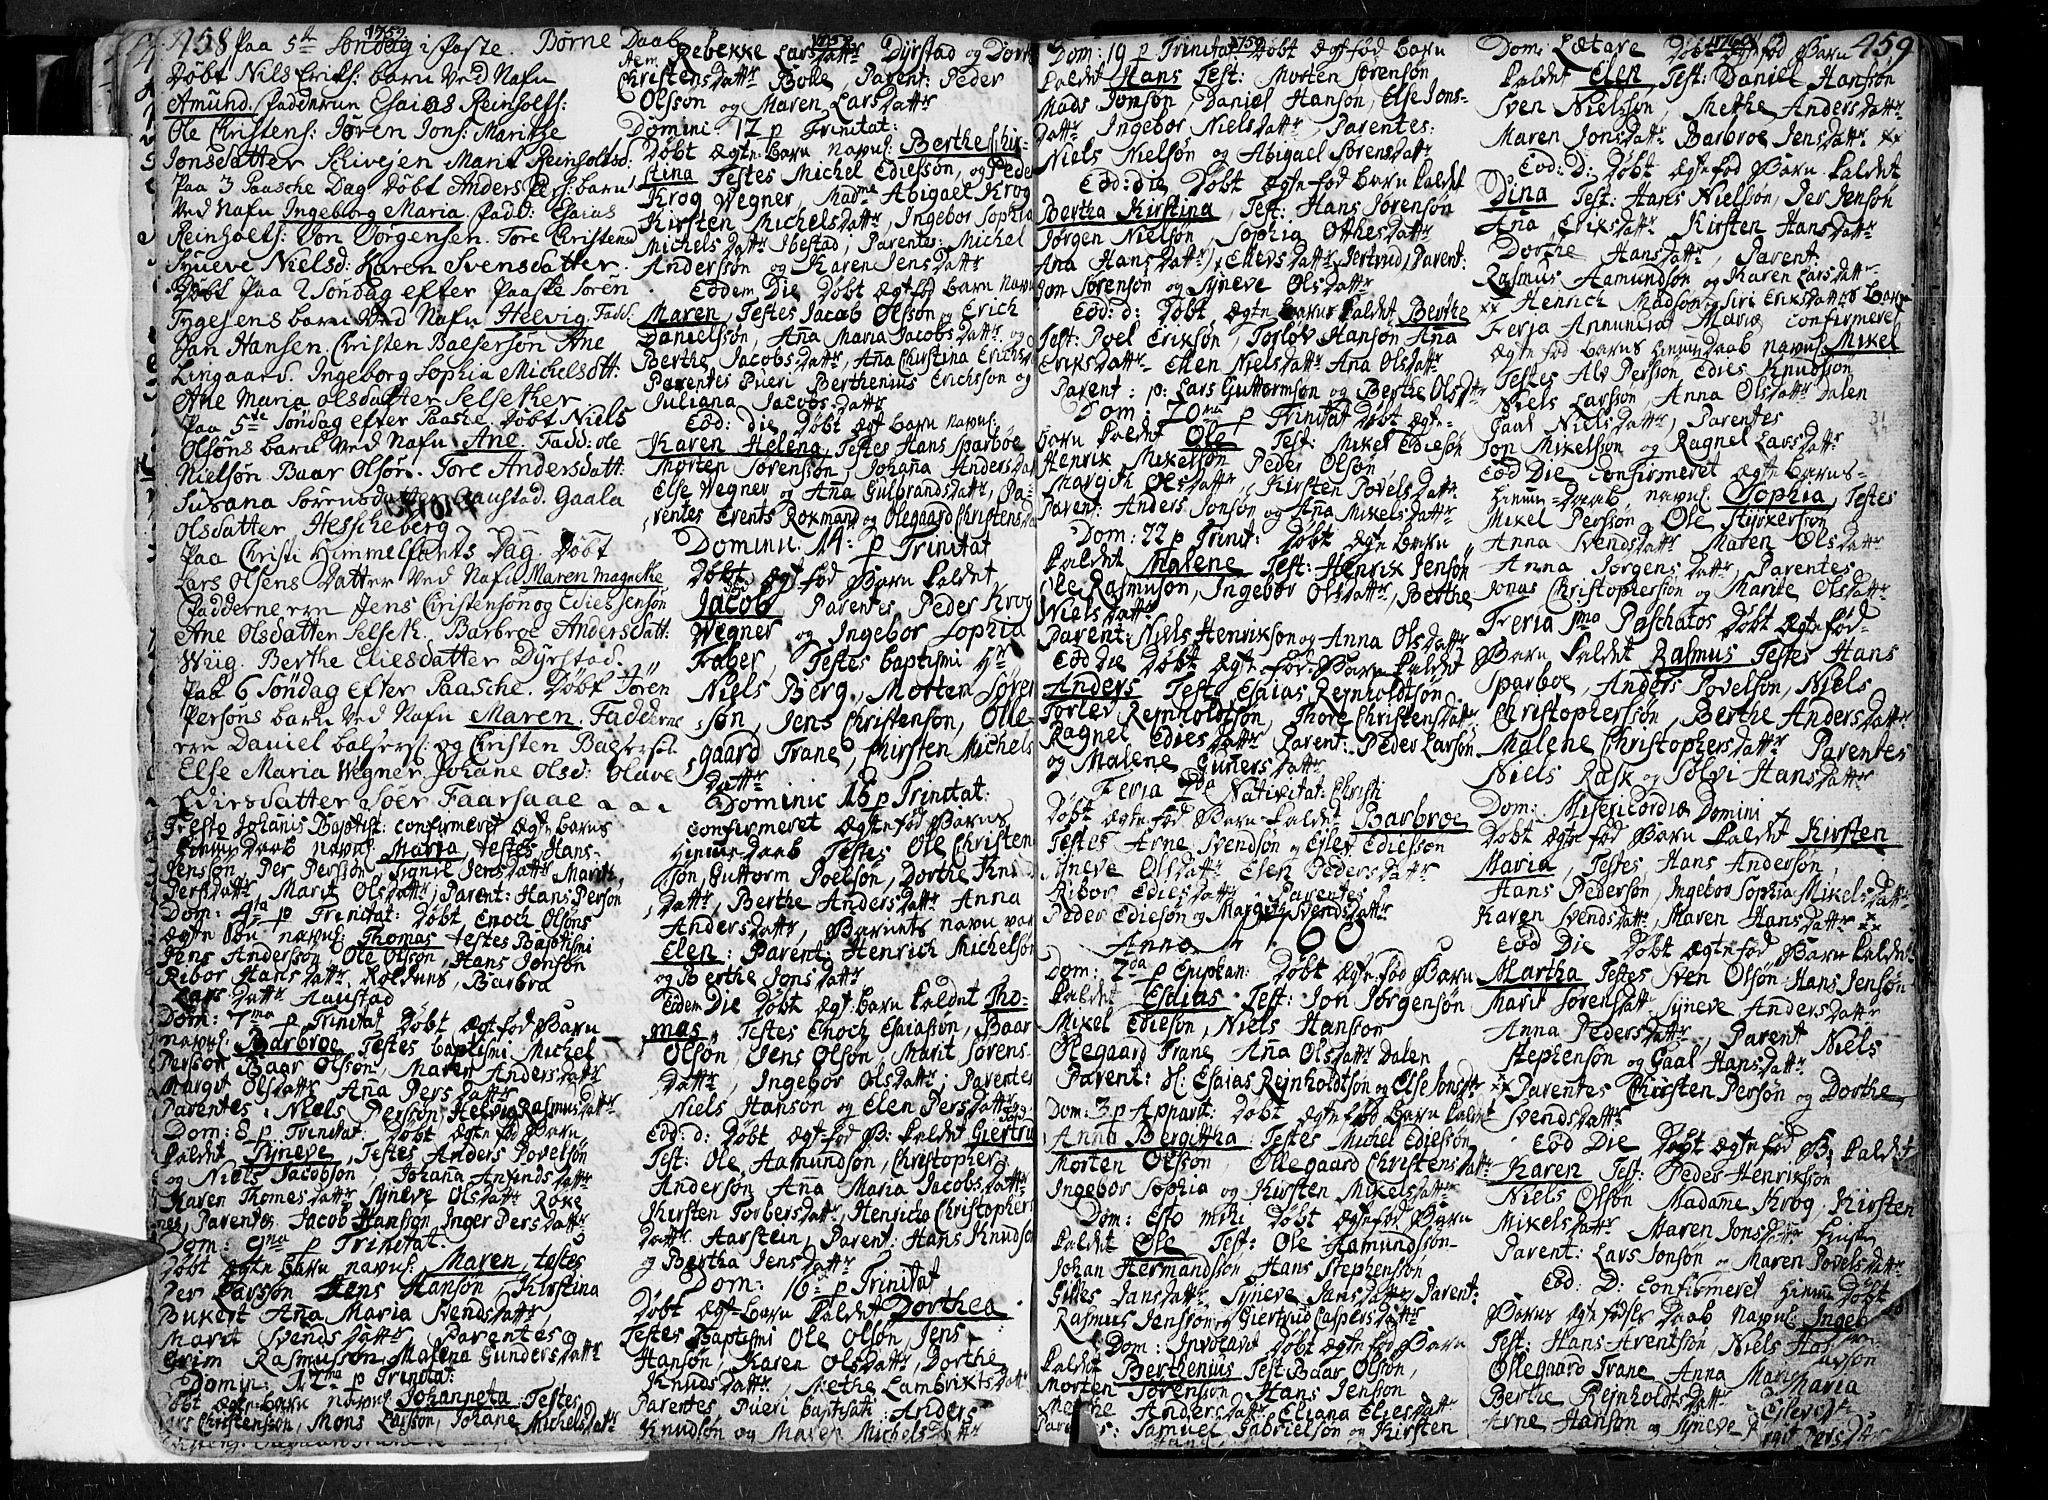 458 Paa 5te Søndag i Faste. Børne Daab
1759
Døbt Nils Eriks: barn ved Nafn
Amund. Fadderun Esaias Reinholts:
Ole Christens: Jøren Jons: Maritze
Jonsdatter Marit Reinholtsd:
Paa 3 Paasche Dag Døbt Anders Pers: barn
ved Nafn Ingeborg Maria. Fadd: Esaias
Reinholts: Jon Jørgensen. Tore Christensd
Syneve Nielsd: Karen Svensdatter.
Døbt Paa 2 Søndag efter Paaske Søren
Ingesens barn ved Nafn Helvig Fadd:
Jan Hansen. Christen Balsersøn Ane
Lingaard. Ingeborg Sophia Michelsdtt:
Ane Maria Olsdatter Selsether
Paa 5te Søndag efter Paasche Døbt Niels
Olsøns barn ved Nafn Ane. Fadd: Ole
Nielsøn. Baar Olsøn. Tore Andersdatt:
Susana Sørensdatter Gaustad. Gaala
Olsdatter Hescheberg
Paa Christi Himmelfarts Dag. Døbt
Lars Olsens Datter ved Nafn Maren Magrethe
Fadderne ere Jens Christensøn og Edies Jensøn
Ane Olsdatter Selseth. Barbroe Andersdatt:
Wiig. Berthe Eliesdatter Dyrstad.
Paa 6 Søndag efter Paasche. Døbt Jøren
Persøns barn ved Nafn Maren. Fadderne
ere Daniel balsers: og Christen Balsersøn
Else Maria Wegner Johane Olsd: Olave
Ediesdatter
Festo Johanis Baptist: confirmeret ægte barns
hiemmedaab navnl: Maria testes Hans
Jensøn, Per Persøn, Signil Jensdattr Marit
Persdattr, Marit Olsdattr, Parent: Hans Persøn
Dom: 4ta p Trinitat: Døbt Enoch Olsøns
ægte søn navnl: Thomas testes Baptismi
Jens Andersøn, Ole Olsøn, Hans Jonsøn
Ribor Hansdattr, Barbra
Larsdattr Haustad
Dom: 7ma p Trinitat Døbt ægtefød Barn
navnl: Barbroe Testes baptismi Michel
Persøn Baar Olsøn, Maren Andersdattr
Margit Olsdattr Aña Persdattr
Parentes, Niels Persøn, Helvig Rasmusdattr
Dom: 8 p Trinitat: Døbt ægtefød Barn
kaldet Syneve, Testes Anders Povelsøn
og Niels Jacobsøn, Johaña Anfindsdattr
Karen Thomesdattr, Syneve Olsdattr
Parentes Jacob Hansøn Inger Persdattr
Dom: 9na p Trinitat.
Døbt ægte barn navnl: Maren, testes
Per Larsøn Jens Hansøn Kirstina
Bukert Aña Maria Svendsdattr,
Marit Svendsdattr, Parentes
Grim Rasmussøn, Malena Gundersdattr
Domin: 12ma p Trinitat:
Døbt ægte barn navnl: Johanneta, Testes
Lars Christensøn, Mons Larsøn, Johane Michelsdattr
1759
Rebekke Larsdattr Dyrstad og Dorthe
Christensdattr Bolle, Parent: Peder
Olsøn og Maren Larsdattr
Domini: 12 p Trinitat:
Døbt ægte barn navnl: Berthe Chir-
stina Testes Michel Ediessøn, og Peder
Krog Wegner, Madme Abigael Krog
Kirsten Michelsdattr, Ingebor Sophia
Michelsdattr Ibestad, Parentes: Michel
Anderssøn og Karen Jensdattr
Eodem Die Døbt ægtefød barn navnl:
Maren, Testes Jacob Olsøn og Erich
Danielssøn, Aña Maria Jacobsdattr, og
Berthe Jacobsdattr, Aña Christina Erichsdattr
Parentes Pueri Berthenius Erichssøn og
Juliana Jacobsdattr
Eod: die Døbt ægt barn navnl:
Karen Helena, Testes Hans Sparboe
Morten Sørenssøn, Johaña Andersdattr
Else Wegner og Aña Gulbrandsdattr, Pa-
rentes Erents Rokmand og Olegaard Christensdattr
Dominic: 14: p Trinitat
Døbt ægtefød Barn kaldet
Jacob Parentes, Peder Krog
Wegner og Ingebor Sophia
Traber, Testes baptismi Hr
Niels Berg, Morten Søren
søn, Jens Christensøn, Olle-
gaard Trane, Chirsten Michels
dattr
Dominic 15 p Trinitat:
confirmeret ægtefød Barns
Hiemme-daab Testes Ole Christen
søn, Guttorm Poelsøn, Dorthe Knuds
dattr, Berthe Andersdattr Anna
Andersdattr, Barnets navn var
Elen: Parent: Henrich Michelsøn
og Berthe Jonsdattr
Eodem Die Døbt ægt: barn kaldet Tho-
mas, Testes Enoch Esaiasøn, Baar
Olsøn, Jens Olsøn, Marit Sørens-
dattr, Ingebor Olsdattr; Parentes
Niels Hansøn og Elen Persdattr
Eod: d: Døbt ægtefød B: kaldet Giertru
Test: Ole Aamundsøn, Christopher
Andersøn Aña Maria Jacobsdattr
Kirsten Torbersdattr, Henricha Christophers
dattr Aarstein, Parent: Hans Knudsøn
og Bertha Jensdattr
Dom: 16 p Trinitat
Døbt ægte barn kaldet Dorthea
Testes Baptismi Ole Olsøn, Jens
Hansøn, Karen Olsdattr, Dorthe
Knudsdattr, Methe Lambriktsdattr
Parentes Pueri baptisati: Anders
Knudsøn og Maren Michelsdattr
1759
Dom: 19 p Trinitat: Døbt ægtefød barn
kaldet Hans Test: Morten Sørensøn
Mads Jonsøn, Daniel Hansøn, Else Jons-
dattr Ingebor Nielsdattr, Parentes:
Niels Nielsøn og Abigael Sørensdattr
Eod: die Døbt ægtefød barn kaldet
Bertha Kirstina, Test: Hans Sørensøn
Jørgen Nielsøn, Sophia Otthesdattr
Ana Hansdattr, Ellevsdattr Jertrud, Parent:
Jon Sørensøn og Syneve Olsdattr
Eod: d: Døbt ægte barn kaldet Berthe
Test: Poel Eriksøn, Torløv Hansøn Aña
Eriksdattr Ellen Nielsdattr Ana Olsdattr
Parent: p: Lars Guttormsøn og Berthe Olsdttr
Dom: 20ma p Trinitat Døbt ægte-
barn kaldet Ole Test: Mikel Ediesøn
Henrik Mikelsøn Peder Olsøn,
Margith Olsdattr, Kirsten Povelsdattr
Parent: Anders Jonsøn og Aña Mikelsdattr
Dom: 22 p Trinit: Døbt ægte barn
kaldet Malene Test: Henrik Jensøn
Ole Rasmusøn, Ingebor Olsdattr, Berthe
Nielsdattr
Parent: Niels Henriksøn og Anna Olsdattr
Eod Die Døbt ægte-fød-Barn kaldet
Anders Test: Esaias Rejnholdtsøn
Torlev Rejnholdtsøn, Thore Christensdattr
Ragnel Ediesdattr Parent: Peder Larsøn
og Malene Gunersdattr
Feria 2da Nativitat: Christi
Døbt ægtefød Barn kaldet Barbroe
Testes Arne Svendsøn og Eslev Ediessøn
Syneve Olsdattr Elen Pedersdattr
Ribor Ediesdattr Parentes
Peder Ediesøn og Margit Svendsdattr
Anno 1760
Dom: 2da p Epiphan: Døbt ægtefød Barn
kaldet Esaias. Test: Jon Jørgensøn
Mikel Ediesøn, Niels Hansøn
Olegaard Trane Aña Olsdattr Dalen
Parent: H: Esaias Rejnholdtsøn og Else Jonsdttr
Dom: 3 p Døbt ægtefød barn kaldet
Anna Bergittha. Testes Michel Ediessøn
Morten Olssøn, Ollegaard Christensdattr
Ingebor Sophia og Kirsten Mikelsdattr
Dom: Esto mihi Døbt ægtefød Barn
kaldet Ole Test: Ole Aamundssøn
Johan Hermandsøn, Hans Stephensøn
Gilles Jansdattr, Syneve Jansdattr, Parent:
Rasmus Jensøn og Giertrud Caspersdattr
Dom: Invocavit Døbt ægtefød Barn
kaldet Berthenius Test: Baar Olsøn,
Morten Sørensøn Hans Jensøn
Marthe Andersdattr Eliana Eliesdattr
Samuel Gabrielsøn og Kirsten
459
1760
Dom: Lætare Døbt ægtefød Barn
kaldet Elen Test: Daniel Hansøn
Sven Nielsøn, Methe Andersdattr
Maren Jonsdattr Barbroe Jensdattr xx
Eod: D: Døbt ægtefød Barn kaldet
Dina Test: Hans Nielsøn, Per Jensøn
Aña, Eriksdattr Kirsten Hansdattr
Dorthe Hansdattr, Parent
Rasmus Aamundsøn og Karen Larsdattr
xx Henrich Madsøn og Siri Eriksdattrs barn
Feria Annunciat Mariæ confirmeret
ægtefød barns hiemmdaab navnl: Mikel
Testes Alv Persøn Edies Knudsøn
Niels Larsøn, Anna Olsdattr Dalen
Gaal Nielsdattr, Parentes
Jon Mikelsøn og Ragnel Larsdattr
Eod Die confirmeret ægte barns-
hiemme-daab navnl: Sophia, Testes
Mikel Persøn Ole Styrkersøn
Anna Svendsdattr Maren Olsdattr
Anna Jørgensdattr, Parentes
Jonas Christophersøn og Marite Olsdattr
Feria 1ma Paschatos Døbt ægtefød-
Barn kaldet Rasmus Testes Hans
Sparboe, Anders Povelsøn, Niels
Christophersøn, Berthe Andersdattr
Malene Christophersdattr Parentes
Niels Rask og Sølvi Hansdattr
Dom: Misericordia Domini
Døbt ægtefød Barn kaldet Kirsten
Maria, Testes, Hans Andersøn
Hans Pedersøn, Ingebor Sophia Mikelsdattr
Karen Svendsdattr, Maren Hansdattr xx
Eod Die Døbt ægtefød Barn kaldet
Martha Testes Sven Olsøn Hans Jensøn
Marit Sørensdattr Syneve Andersdattr
Anna Pedersdattr, Parent Niels
Stephensøn og Gaal Hansdattr
xx Parentes Chirsten Persøn og Dorthe
Svendsdattr
Eod Die Døbt ægtefød B: kaldet
Karen Test: Peder Henriksøn
Niels Olsøn Madame Krog, Kirsten
Mikelsdattr Maren Jonsdattr
Parent: Lars Jonsøn og Maren Povelsdattr
Eod: D: confirmeret hiemme Døbt
Barns ægte fødsels Daab navnl: Ingeb
Test: Hans Arentsøn, Niels Has
Ollegaard Trane Anna Marie
Berthe Rejnholdtsdattr Maria
Arne Hansøn og Syneve